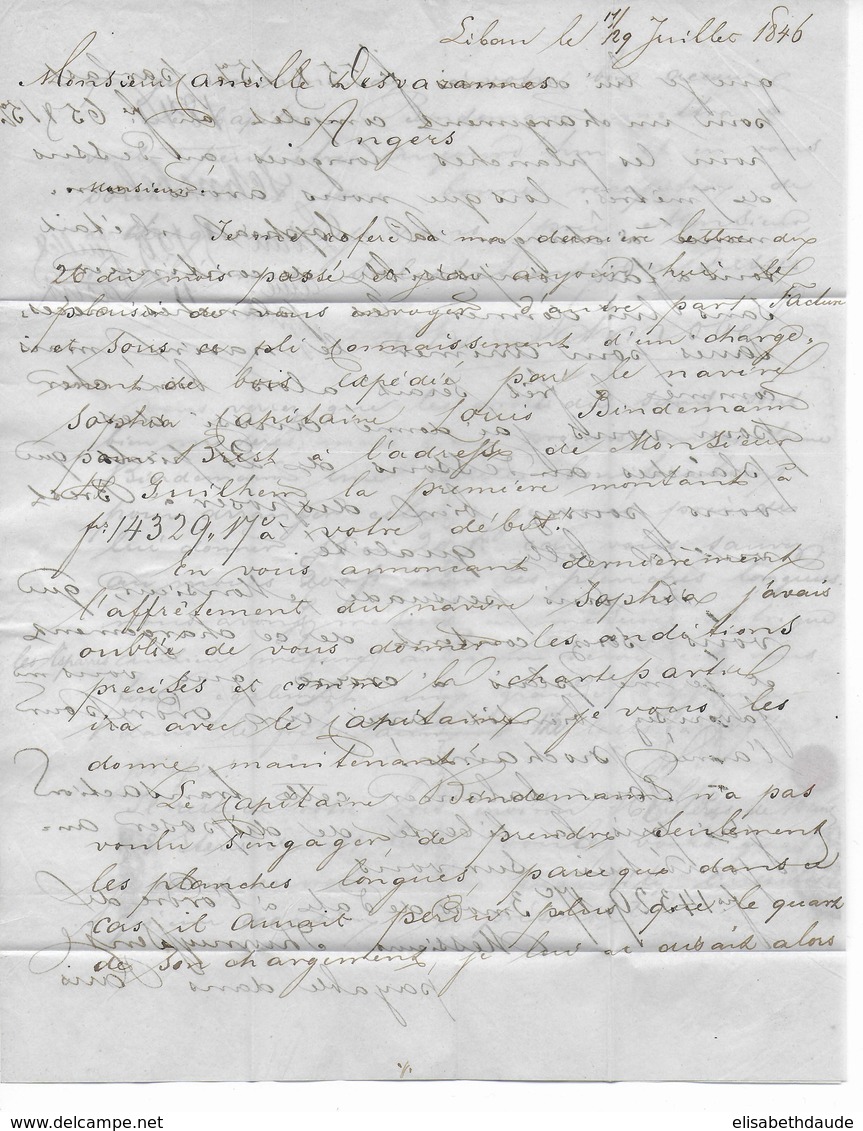 Libau le 17/29 Juillet 1846
Monsieur Camille Desvarannes
Angers
Monsieur!
Je me réfère à ma dernière lettre du
26 du mois passé et j'ai aujourd'hui le
plaisir de vous envoyer d'autre part Facture
et sous ce pli connaissement d'un charge-
ment de bois expédié par le navire
Sophia Capitaine Louis Bindemann
pour Brest à l'adresse de Monsieur
Guilhem la première montant à
fr. 14329,,17 à votre débit.
En vous annonçant dernièrement
l'affrêtement du navire Sophia j'avais
oublié de vous donner les conditions
précises et comme la chartepartie
ira avec le Capitaine je vous les
donne maintenant.
Le Capitaine Bindemann n'a pas
voulu s'engager de prendre seulement
les planches longues parceque dans ce
cas il aurait perdu plus que le quart
de son chargement, je lui ai alors
elisabethdaude